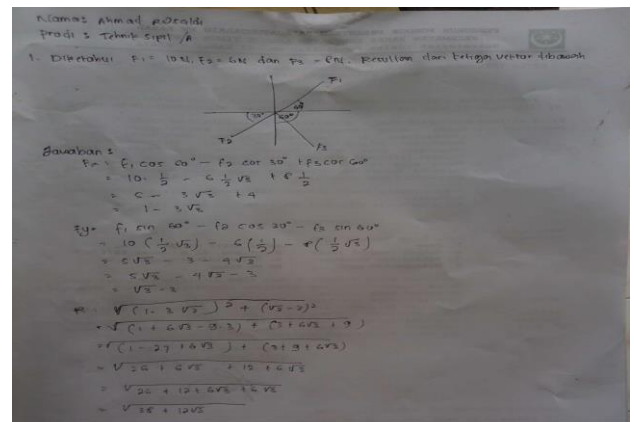 Nama : Ahmad
Prodi : Teknik Sipil /A
1. Diketahui F1 = 10 N, F2 = 6N dan F3 = 8N. Resultan dari ketiga vektor dibawah
F1
30° 60° 60°
F2 F3
Jawaban :
Fx = F1 cos 60° - F2 cos 30° + F3 cos 60°
= 10 . 1/2 - 6 1/2 √3 + 8 1/2
= 5 - 3√3 + 4
= 1 - 3√3
Fy = F1 sin 60° - F2 cos 30° - F3 sin 60°
= 10 (1/2 √3) - 6 (1/2) - 8 (1/2 √3)
= 5√3 - 3 - 4√3
= 5√3 - 4√3 - 3
= √3 - 3
R = √(1 - 3√3)² + (√3 - 3)²
= √(1 + 6√3 - 9.3) + (3 + 6√3 + 9)
= √(1 - 27 + 6√3) + (3 + 9 + 6√3)
= √26 + 6√3 + 12 + 6√3
= √26 + 12 + 6√3 + 6√3
= √38 + 12√3